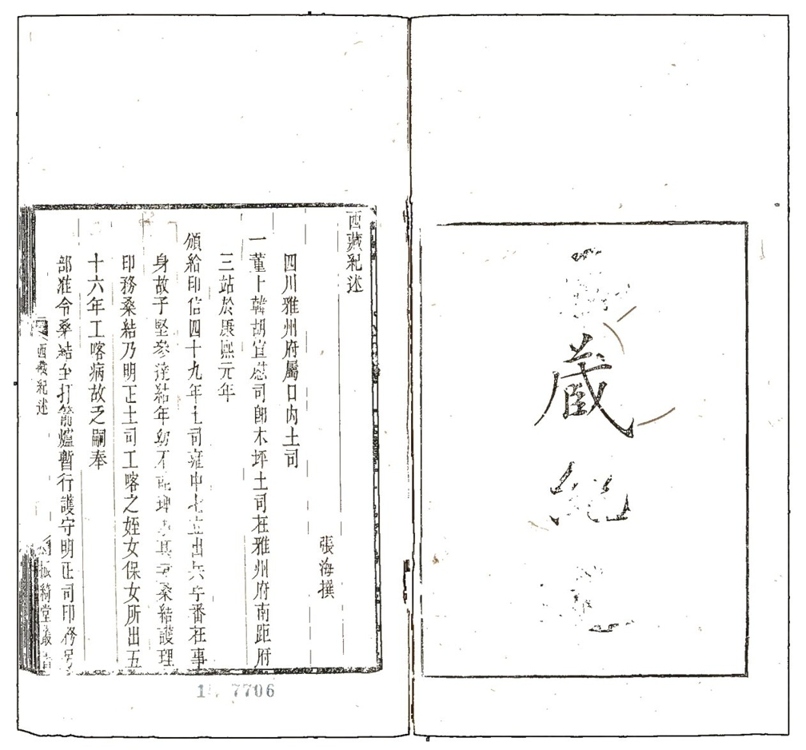 藏紀
西藏紀述
張海撰
四川雅州府屬口內土司
一董卜韓胡宣慰司卽木坪土司在雅州府南距府
三站於康熙元年
頒給印信四十九年土司雍中七立出兵番在事
身故子堅參達結年幼不能理其妻桑結護理
印務桑結乃明正土司工喀之姪女保女所出五
十六年工喀病故乏嗣奉
部准令桑結至打箭爐暫行護守明正司印務另
西藏紀述
振綺堂叢書
7706